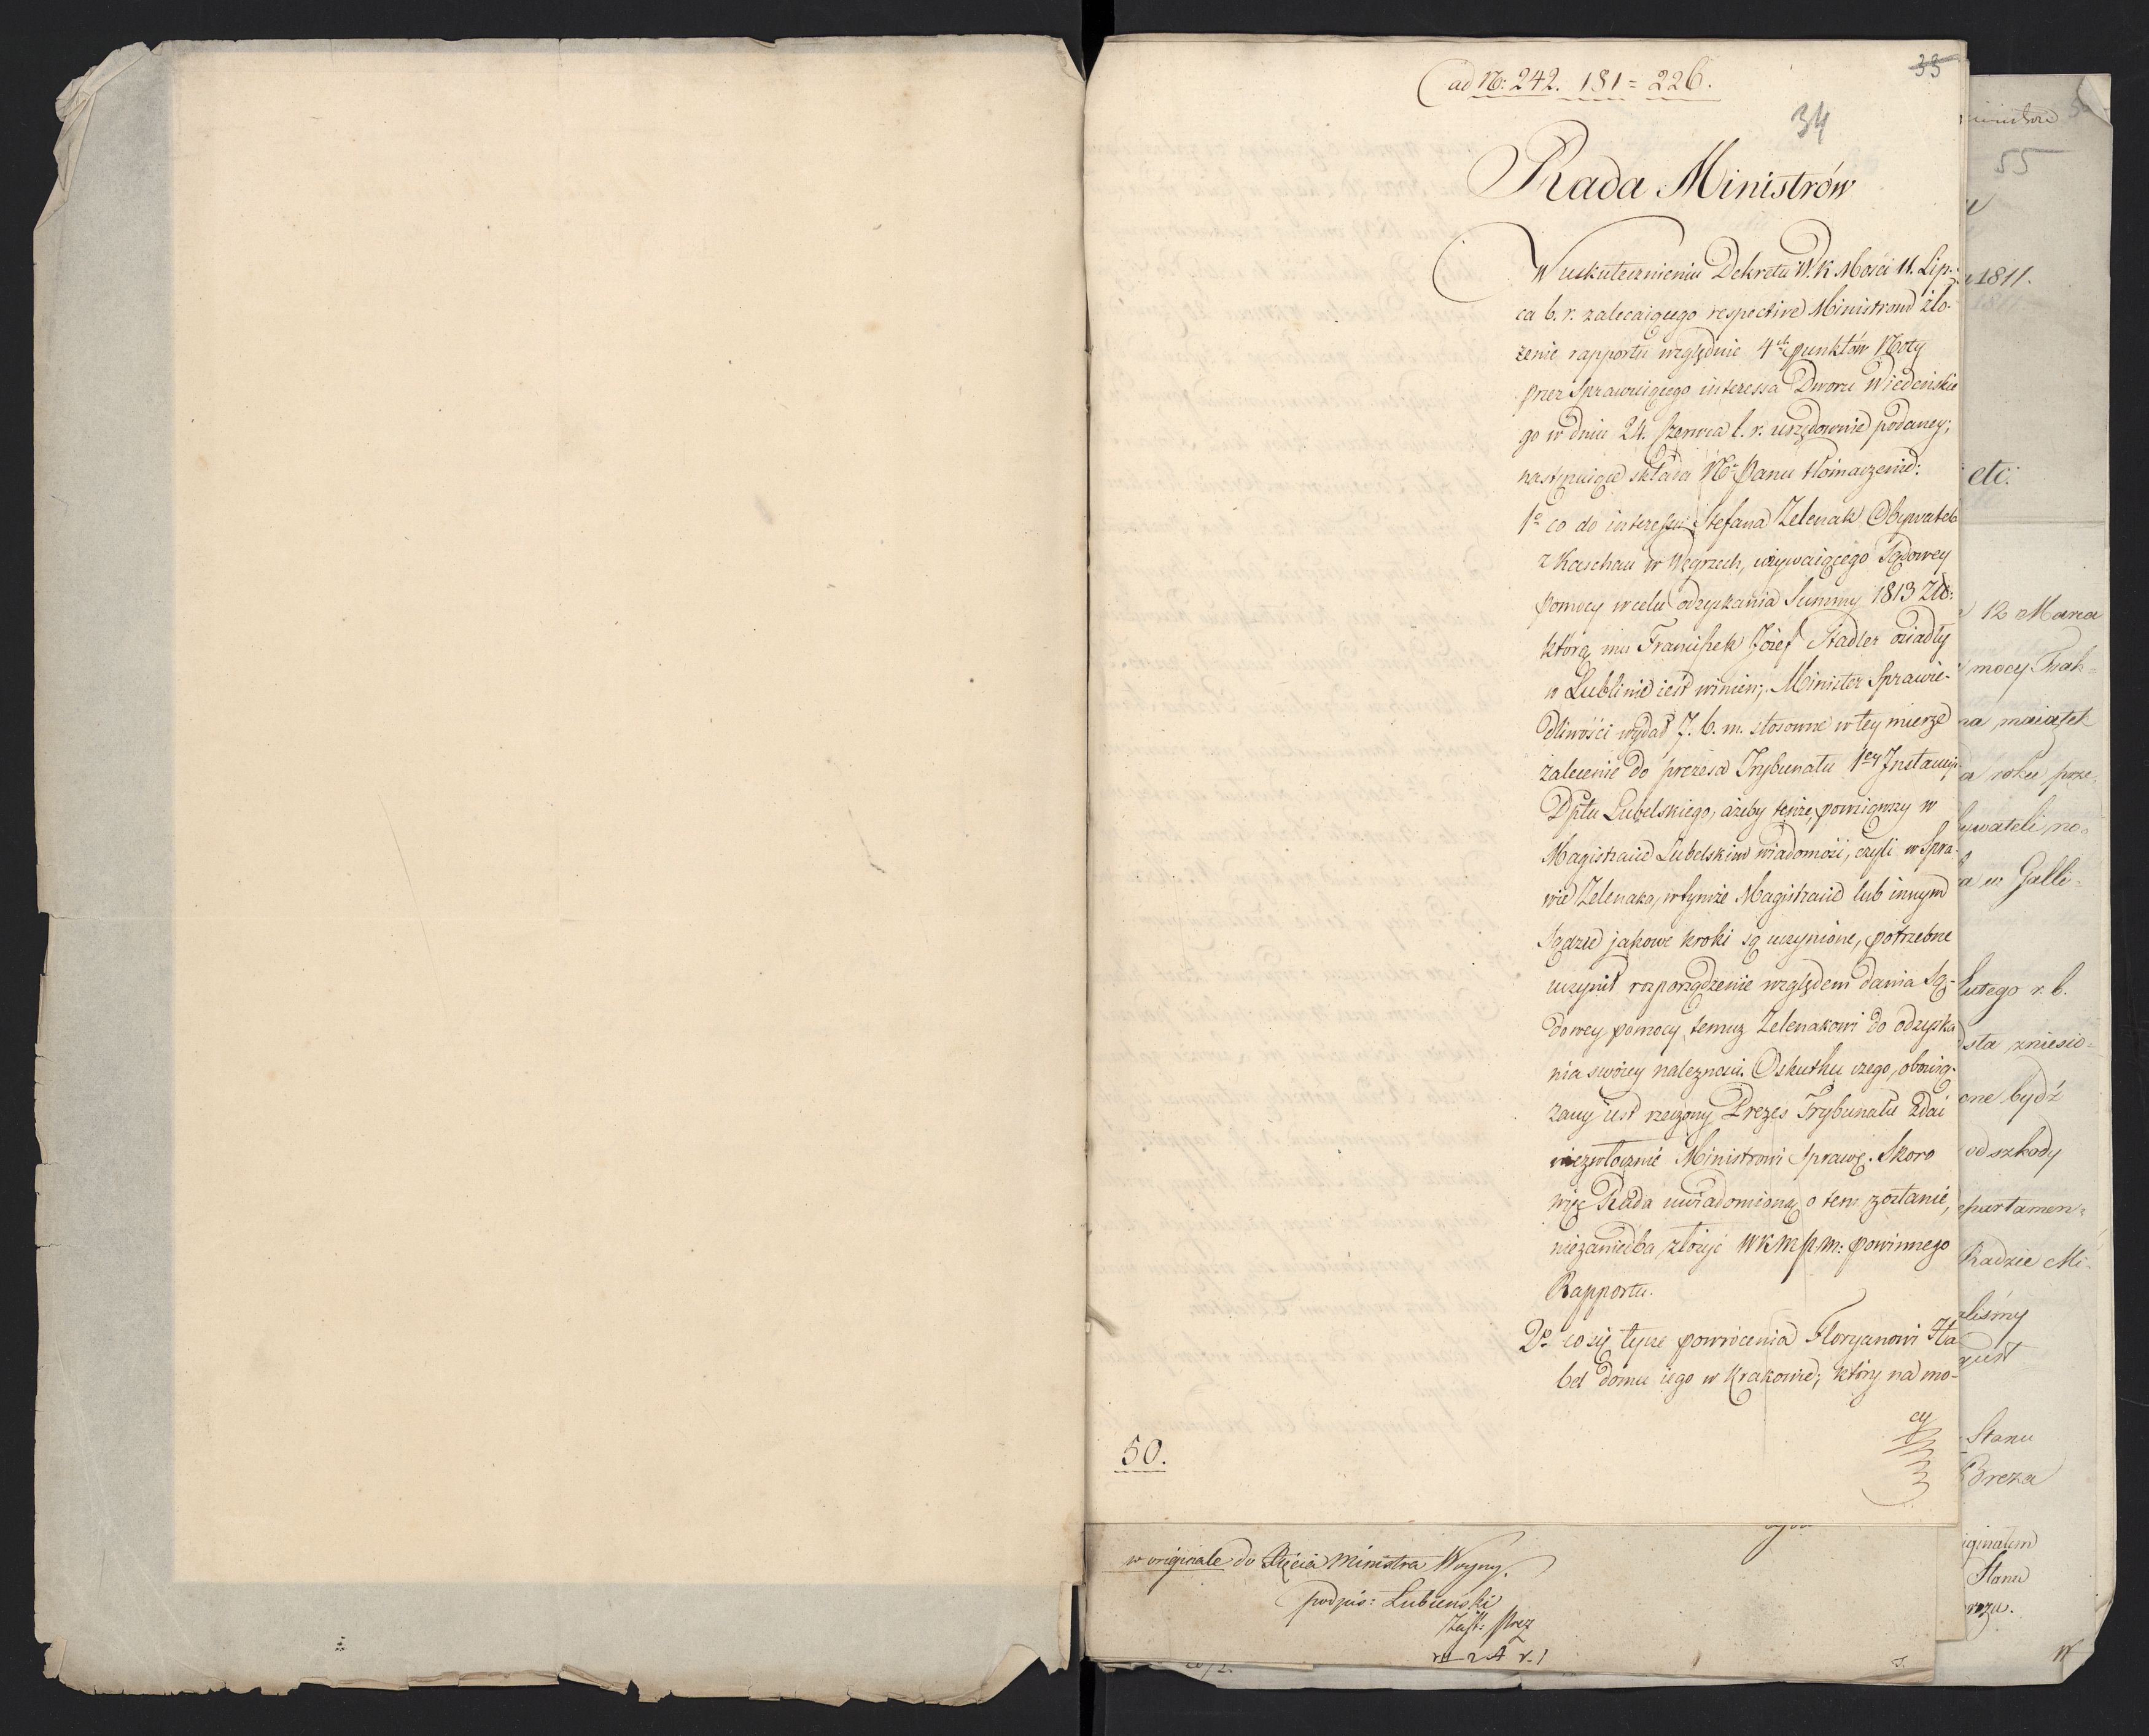 ad No: 242. 181 = 226.
33
34
Rada Ministrów
W uskutecznieniu Dekretu W. K Mości 11. Lip-
ca b. r. zalecaiącego respective Ministrom zło-
żenie rapportu względnie 4ch punktów Noty
przez Sprawuiącego interessa Dworu Wiedeńskie
go w dniu 24. Czerwca b. r. urzędownie podaney;
następuiące składa Nro Panu tłómaczenie:
1o co do interessu Stefana Zelenak Obywatela
z Kaschau w Węgrzech, wzywaiącego Sądowey
pomocy w celu odzyskania Summy 1813 Zło:
którą mu Franciszek Józef Stadler osiadły
w Lublinie iest winien; Minister Sprawie-
dliwości wydał 7. b. m. stosowne w tey mierze
zalecenie do prezesa Trybunału 1ey Instancyi
Dptu Lubelskiego, ażeby tenże, powziąwszy w
Magistracie Lubelskim wiadomość, czyli w Spra-
wie Zelenaka, w tymże Magistracie lub innym
Sądzie jakowe kroki są uczynione, potrzebne
uczynił rozporządzenie względem dania Są-
dowey pomocy temuż Zelenakowi do odzyska
nia swoiey należności. O skutku czego, obowią-
zany iest rzeczony Prezes Trybunału zdać
niezwłocznie Ministrowi Sprawę. Skoro
więc Rada uwiadomioną o tem zostanie,
niezaniedba złożyć WKMPM: powinnego
Rapportu.
2o co się tycze powrócenia Floryanowi Sta
bel domu iego w Krakowie; który na mo-
cy
50.
w originale do Xięcia Ministra Woyny.
podpis: Lubieński
Zast: Prez
1811.
etc.
12 Marca
mocy Trak=
na maiątek
roku prze.
w Galli-
Lutego r. b.
zniesio=
one bydź
od szkody
epartamen=
Radzie Mi-
aliśmy
gust
Stanu
Breza
iginałem
Stanu
reza.
55